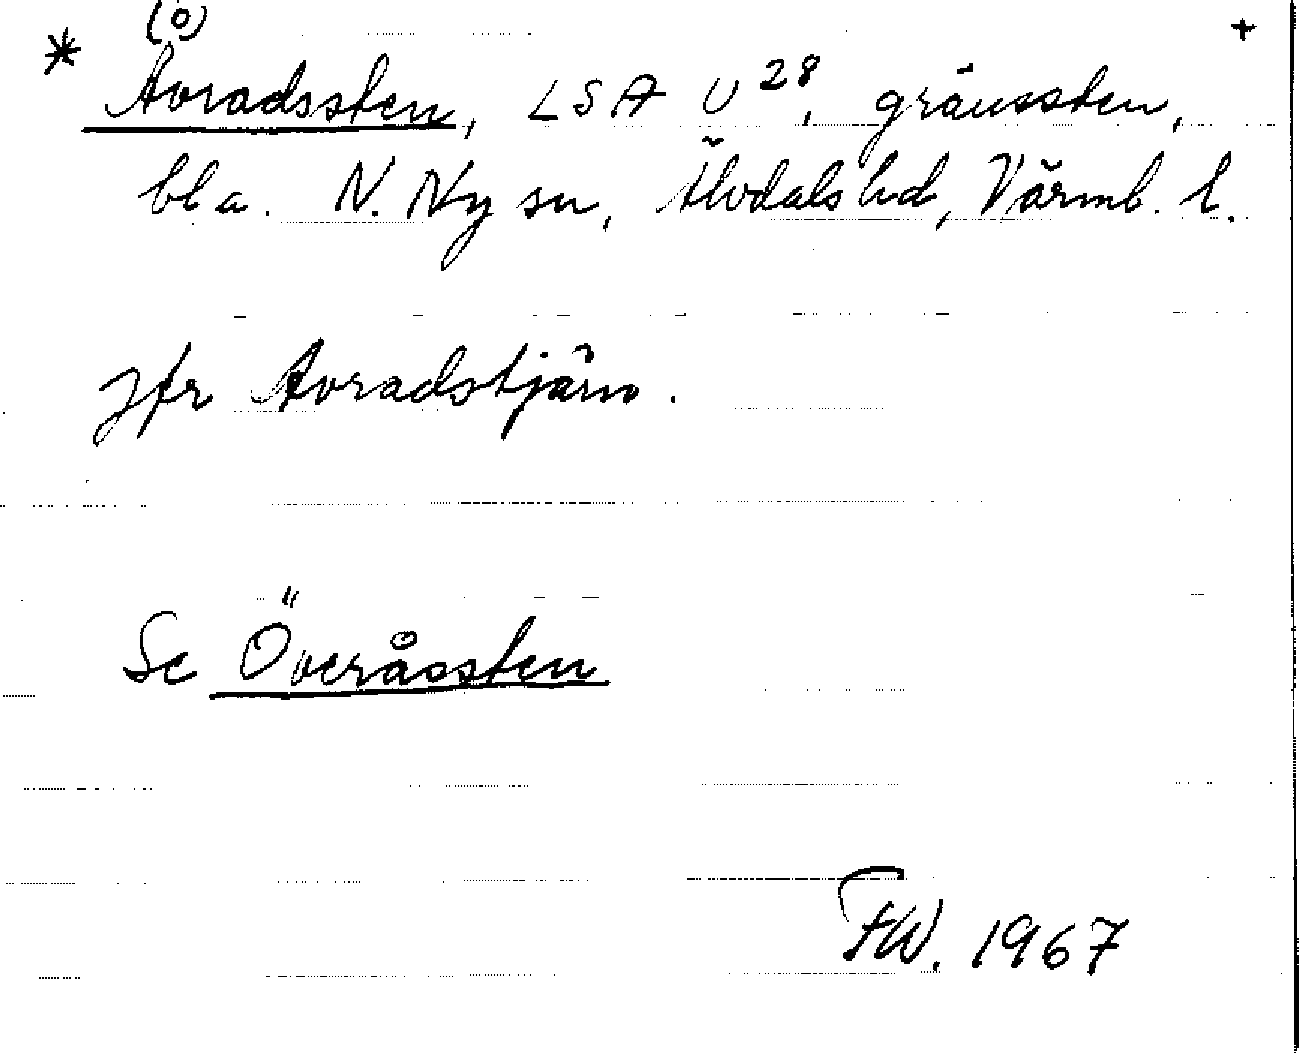 (o) +
* Avradssten, LSA U 28, gränssten,
bl a. N. Ny sn, Älvdals hd, Värml. l.
jfr Avradstjärn.
Se Överåssten
FW. 1967